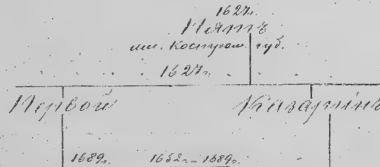 1627г.
Пятъ
им. Костром. губ.
1627г.
Первой Казаринъ
1689г. 1652г.-1689г.